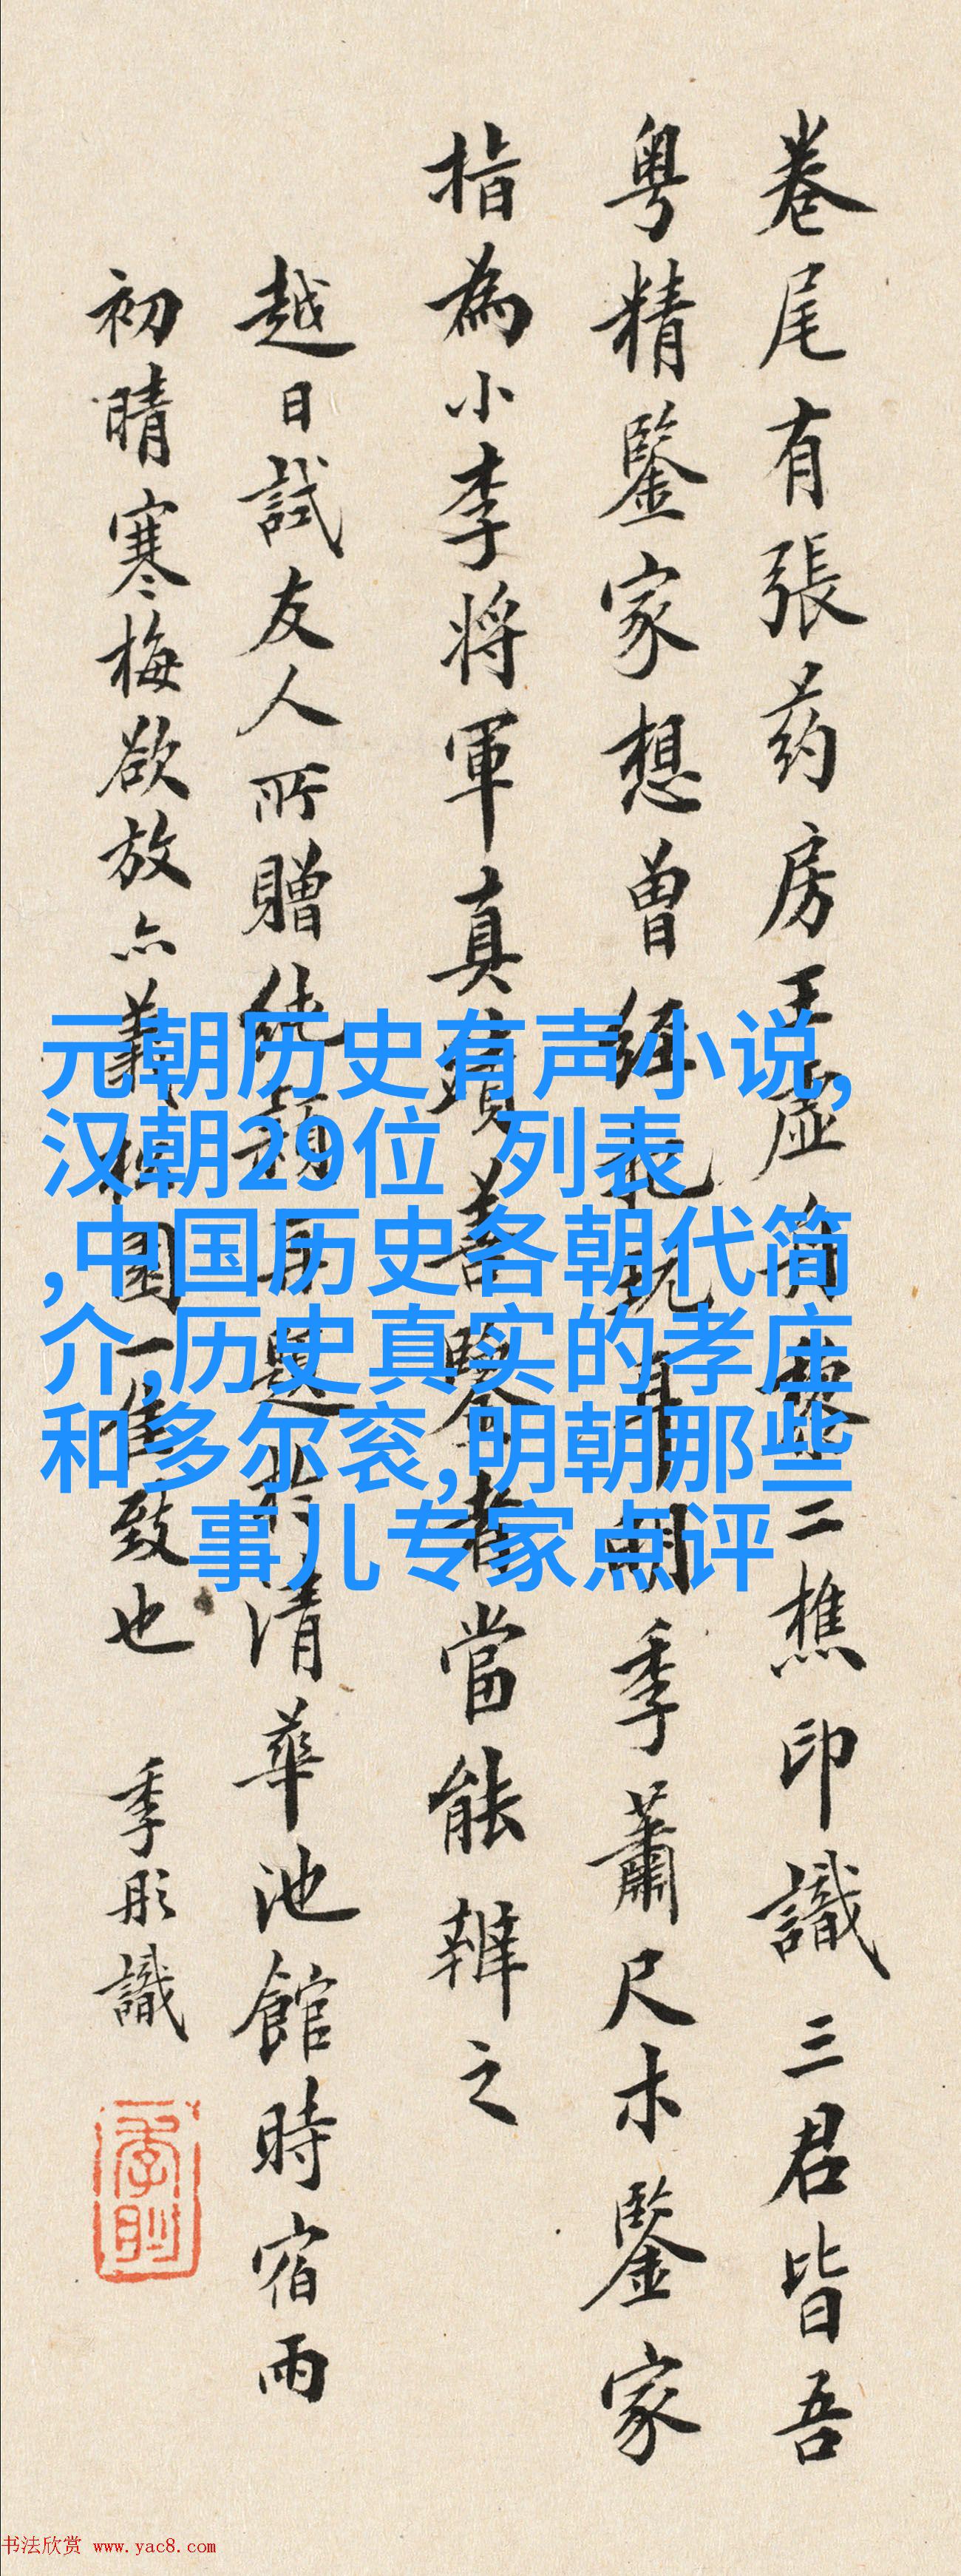 卷尾有張药房王虛舟黎二樵印識三君皆吾
粤精鑒家想曾經明季蕭尺木鑒家
指為小李将軍真蹟善鑒者當能辨之
越日試友人所贈純穎再題於清華池館時宿雨
初晴寒梅欲放亦園一佳致也 季彤識
元朝历史有声小说,
汉朝29位 列表
,中国历史各朝代简
介,历史真实的孝庄
和多尔衮,明朝那些
事儿专家点评
书法欣赏 www.yac8.com